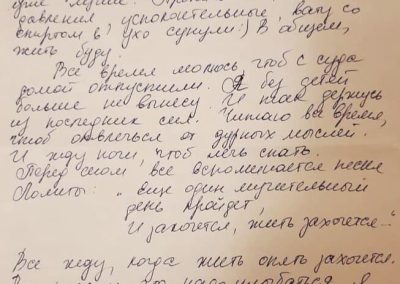 давления успокоительные, вату со
спиртом в ухо сунули:) В общем,
жить буду.
Все время молюсь, чтоб с суда
домой отпустили. Я без детей
больше не вынесу. И так держусь
из последних сил. Читаю все время,
чтоб отвлечься от дурных мыслей.
И жду ночи, чтоб лечь спать.
Перед сном все вспоминается песня
Лолиты: „еще один мучительный
день пройдет,
И захочется, жить захочется..."
Все жду, когда жить опять захочется.